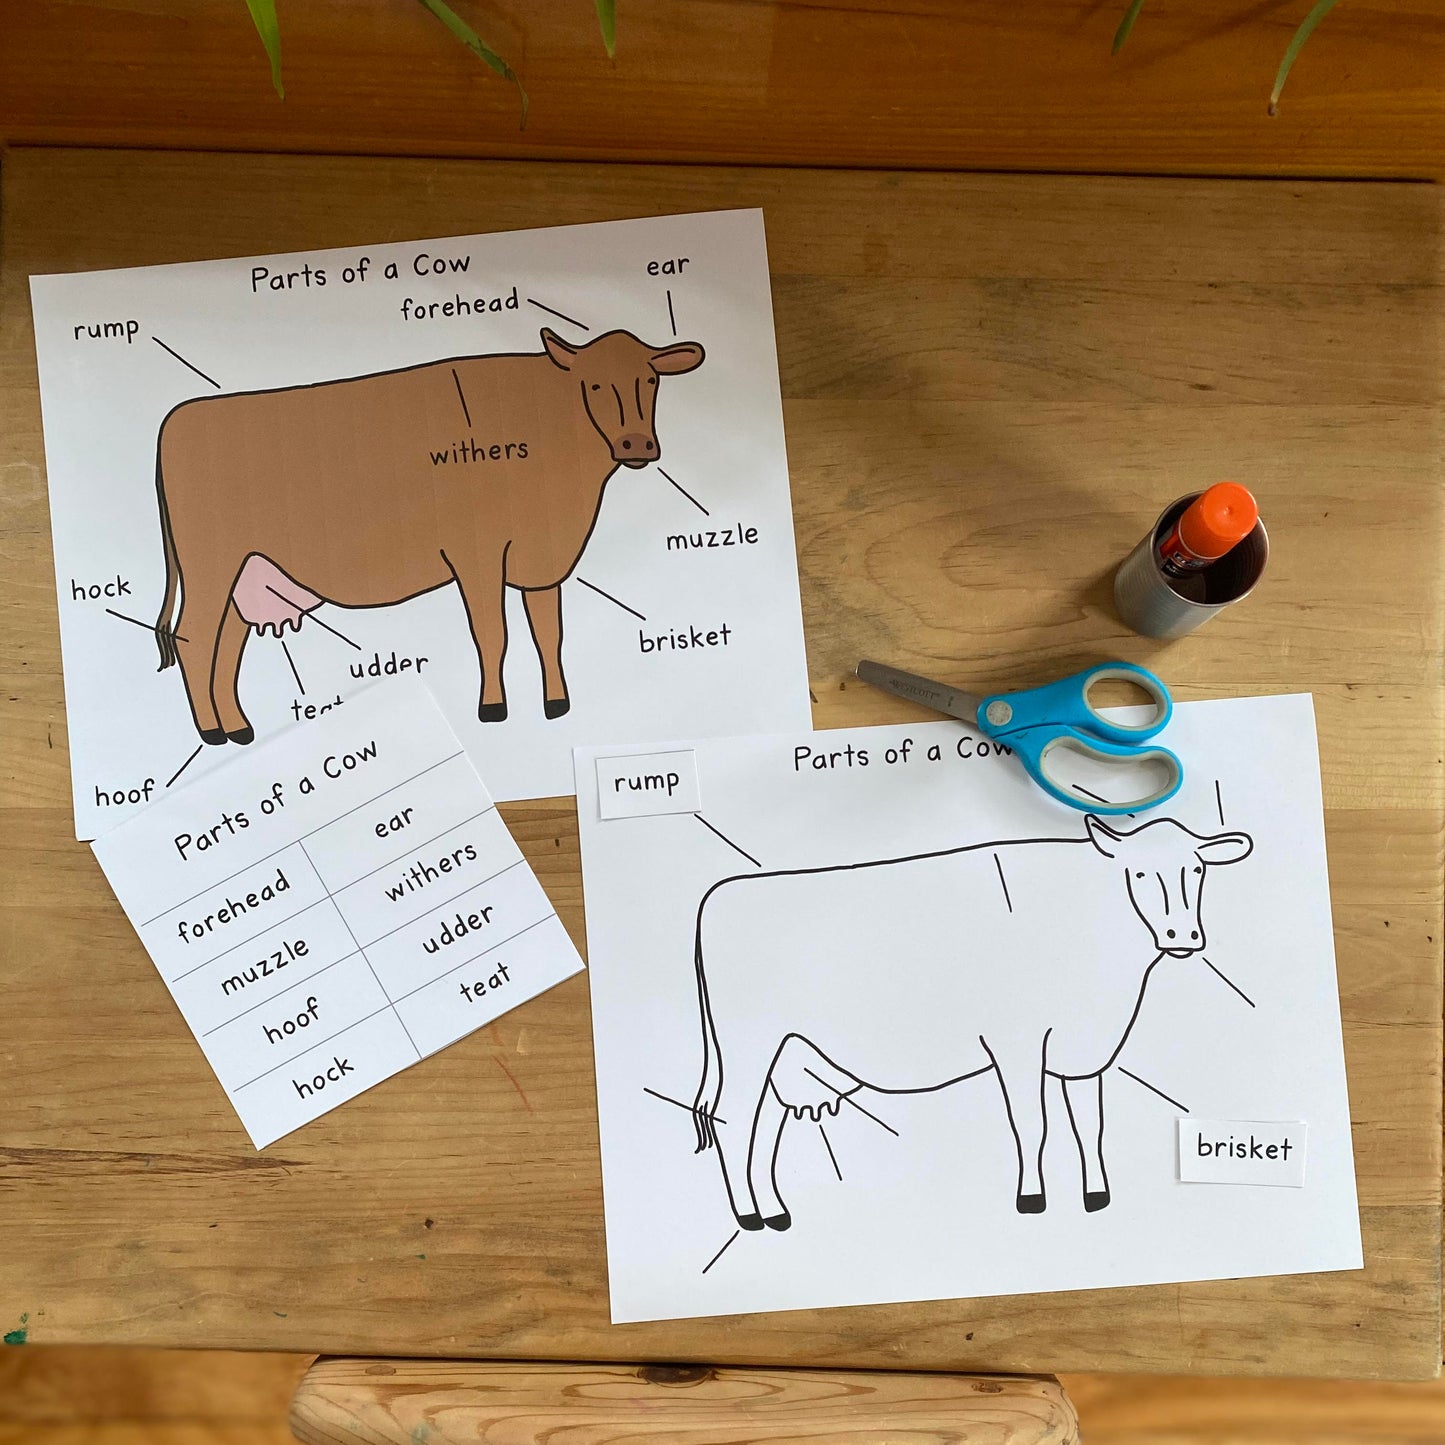 Parts of a Cow
ear
forehead
rump
withers
muzzle
hock
brisket
udder
teat
hoof
Parts of a Cow
ear
forehead
withers
muzzle
udder
hoof
teat
hock
WESTCOTT
Parts of a Cow
rump
brisket